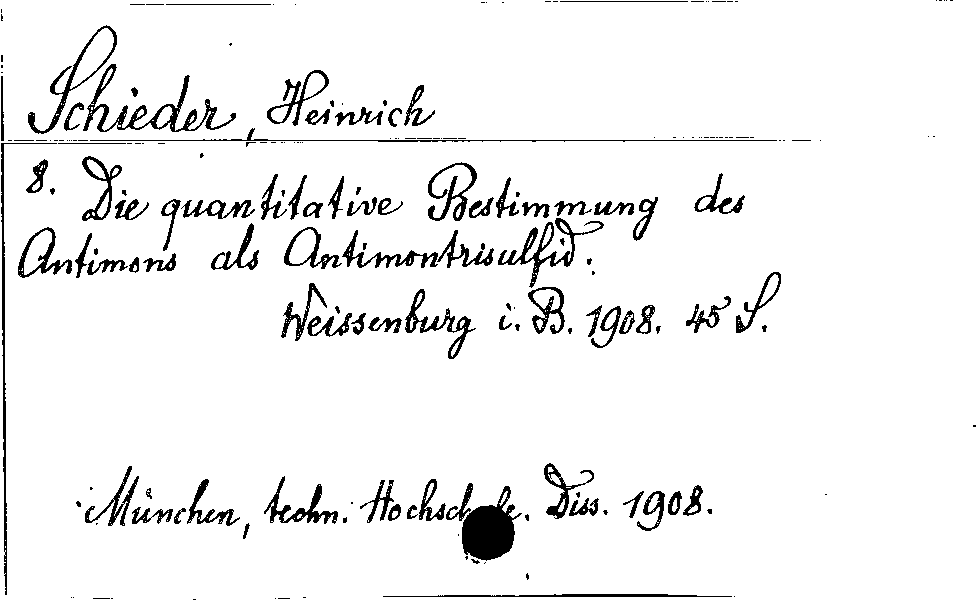 Schieder, Heinrich
8. Die quantitative Bestimmung des
Antimons als Antimontrisulfid.
Weissenburg i. B. 1908. 45 S.
München, techn. Hochschule. Diss. 1908.